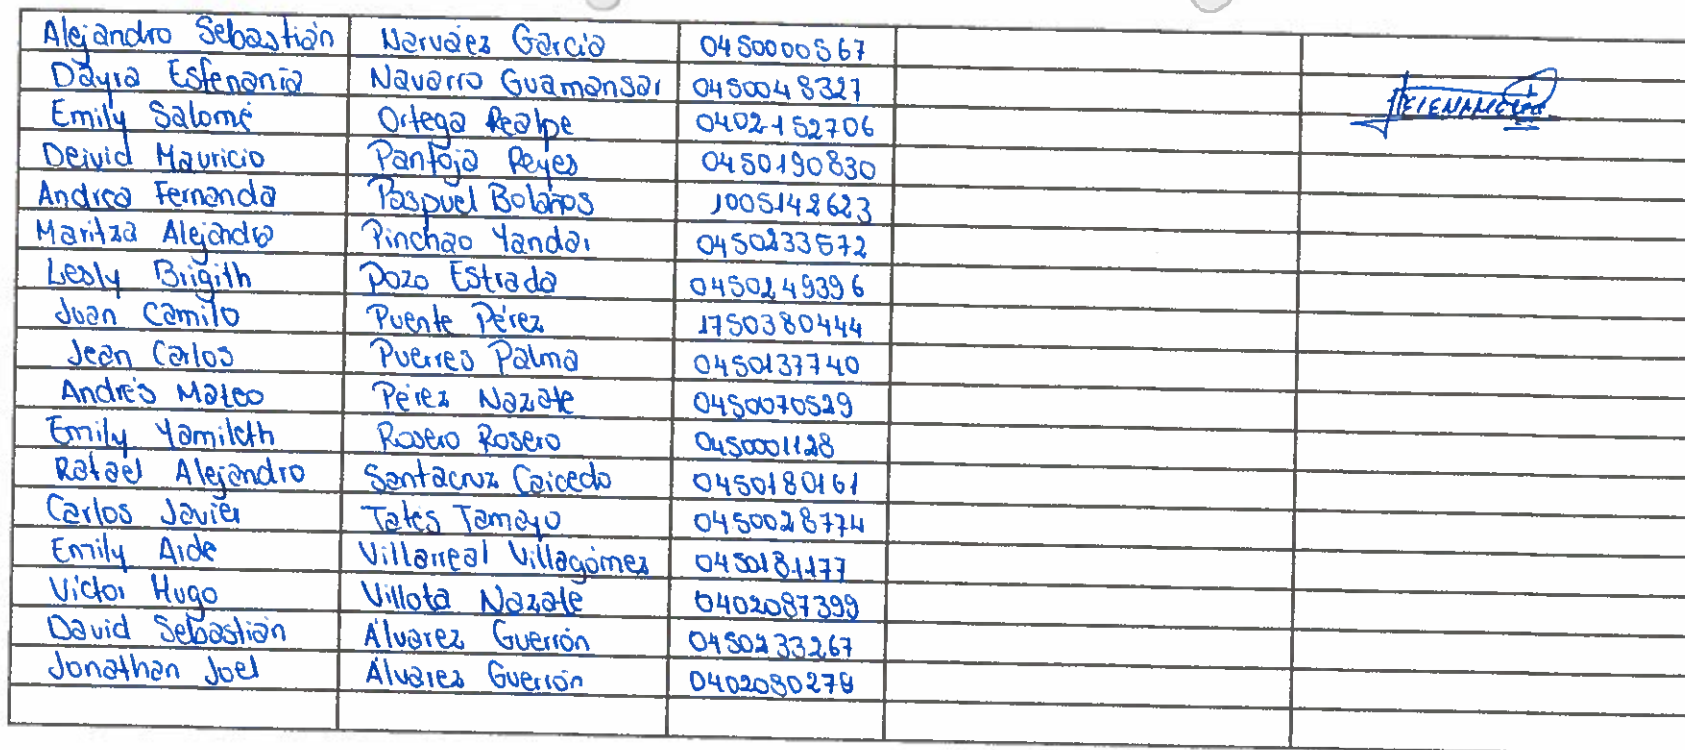 Alejandro Sebastián Narváez García 0450000567
Dayra Esfenanía Navarro Guamansar 0450048327
Emily Salomé Ortega Realpe 0402152706
Deivid Mauricio Pantoja Reyes 0450190830
Andrea Fernanda Paspuel Bolaños 1005142623
Maritza Alejandra Pinchao Yandar 0450233572
Lesly Brigith Pozo Estrada 0450249396
Juan Camilo Puente Pérez 1750380444
Jean Carlos Puerres Palma 0450137740
Andrés Mateo Pérez Nazate 0450070529
Emily Yamileth Rosero Rosero 0450001128
Rafael Alejandro Santacruz Caicedo 0450180161
Carlos Javier Tatés Tamayo 0450028774
Emily Aide Villarreal Villagómez 0450181177
Víctor Hugo Villota Nazate 0402087399
David Sebastián Álvarez Guerrón 0450233267
Jonathan Joel Álvarez Guerrón